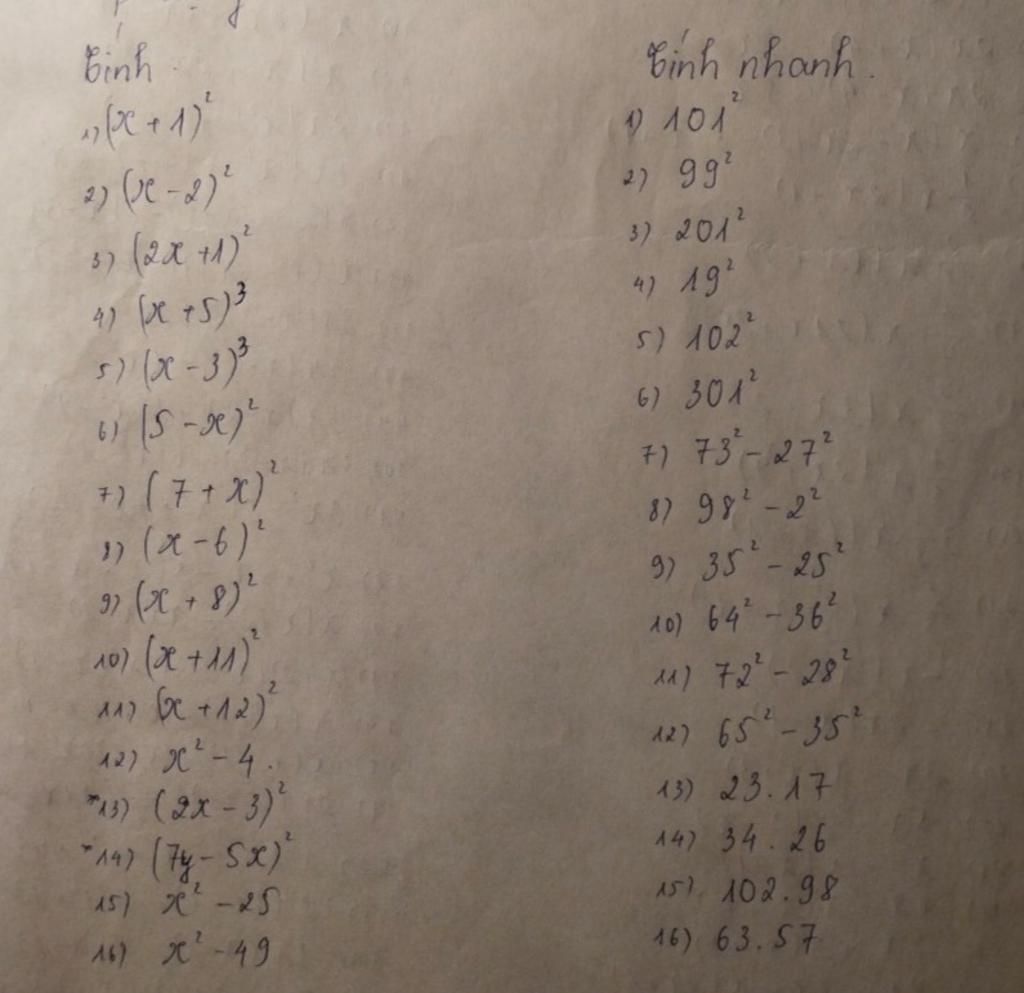 Tính
1) (x + 1)²
2) (x - 2)²
3) (2x + 1)²
4) (x + 5)³
5) (x - 3)³
6) (5 - x)²
7) (7 + x)²
8) (x - 6)²
9) (x + 8)²
10) (x + 11)²
11) (x + 12)²
12) x² - 4.
*13) (2x - 3)²
*14) (7y - 5x)²
15) x² - 25
16) x² - 49
Tính nhanh.
1) 101²
2) 99²
3) 201²
4) 19²
5) 102²
6) 301²
7) 73² - 27²
8) 98² - 2²
9) 35² - 25²
10) 64² - 36²
11) 72² - 28²
12) 65² - 35²
13) 23.17
14) 34.26
15) 102.98
16) 63.57